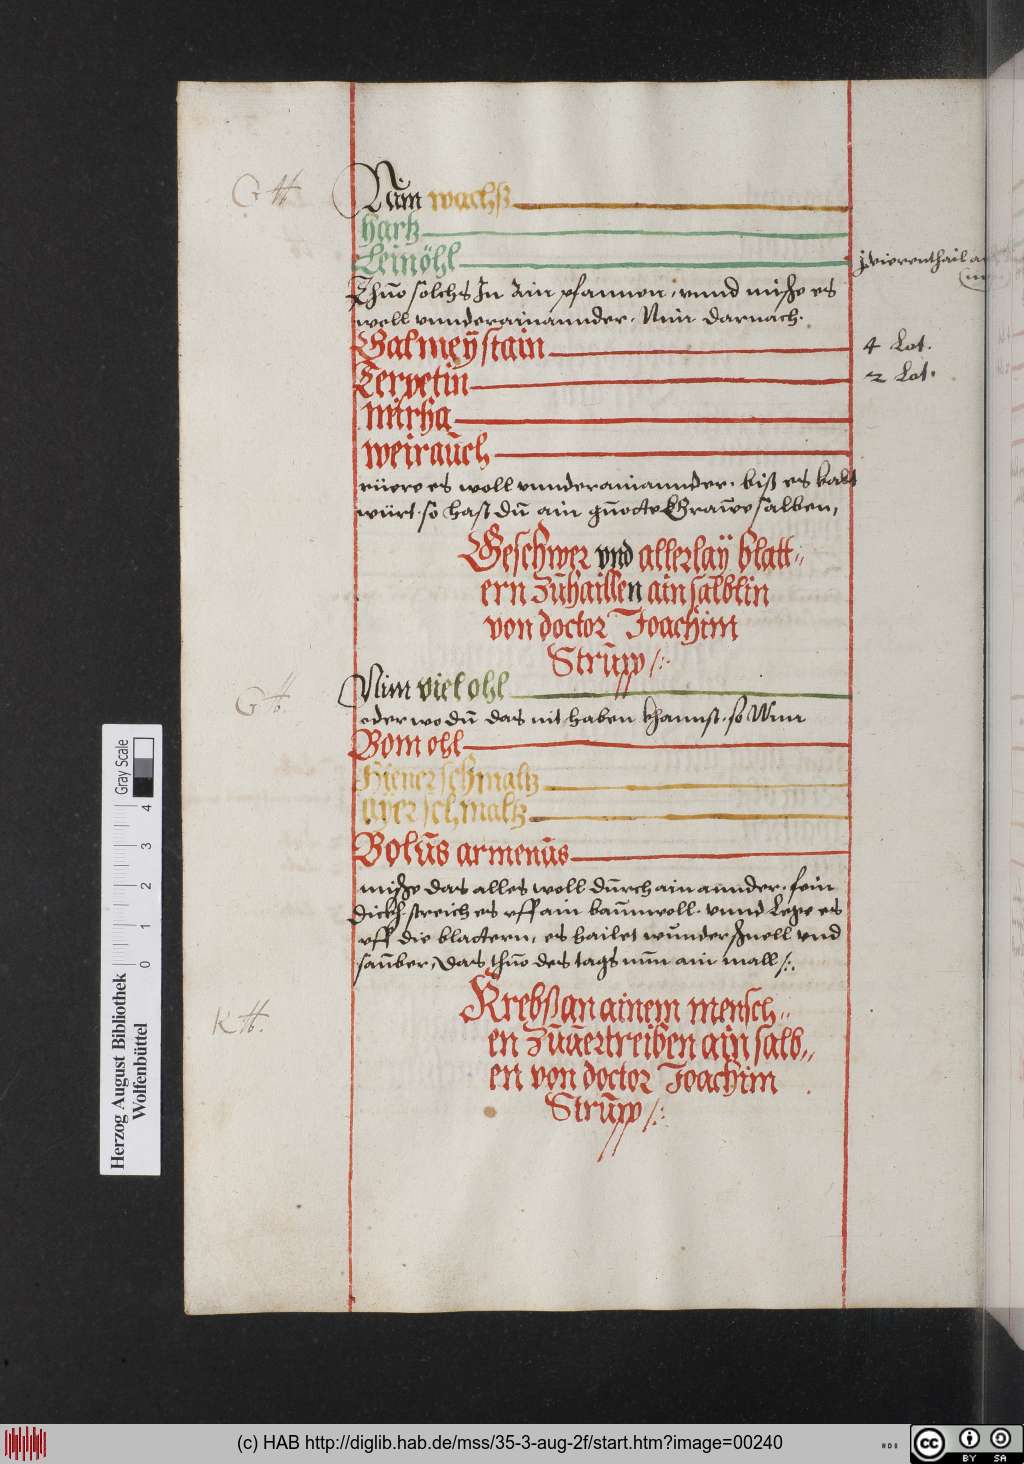 Nim wachß
hartz
Leinöhl
j vierenthail
Thuo solchs In ain pfannen, vnnd mische es
woll vnnderainannder. Nim darnach.
Galmeÿstain
4 Lot.
Terpetin
2 Lot.
mirha
weirauch
rüere es woll vnnderainannder. biß es kalt
würt. so hast dŭ ain guotte Grawe salben,
Geschwer vnd allerlaÿ blatt-
ern zŭhaillen ain salblin
von doctor Joachim
Strŭpp /:
Nim viel ohl
oder wo dŭ das nit haben khannst. so Nim
Bom ohl
Hienerschmaltz
ayerschmaltz
Bolŭs armenŭs
mische das alles woll dŭrchainannder. fein
dickh. streich es vff ain baŭmwoll. vnnd Lege es
vff die blattern, es hailet wŭnderschnell vnd
saŭber, das thuo des tags nŭn ain mall /:.
Krebß an ainem mensch-
en zŭ vertreiben ain salb-
en von doctor Joachim
Strŭpp /:
Gray Scale
4 3 2 1 0
Herzog August Bibliothek
Wolfenbüttel
(c) HAB http://diglib.hab.de/mss/35-3-aug-2f/start.htm?image=00240
cc BY SA